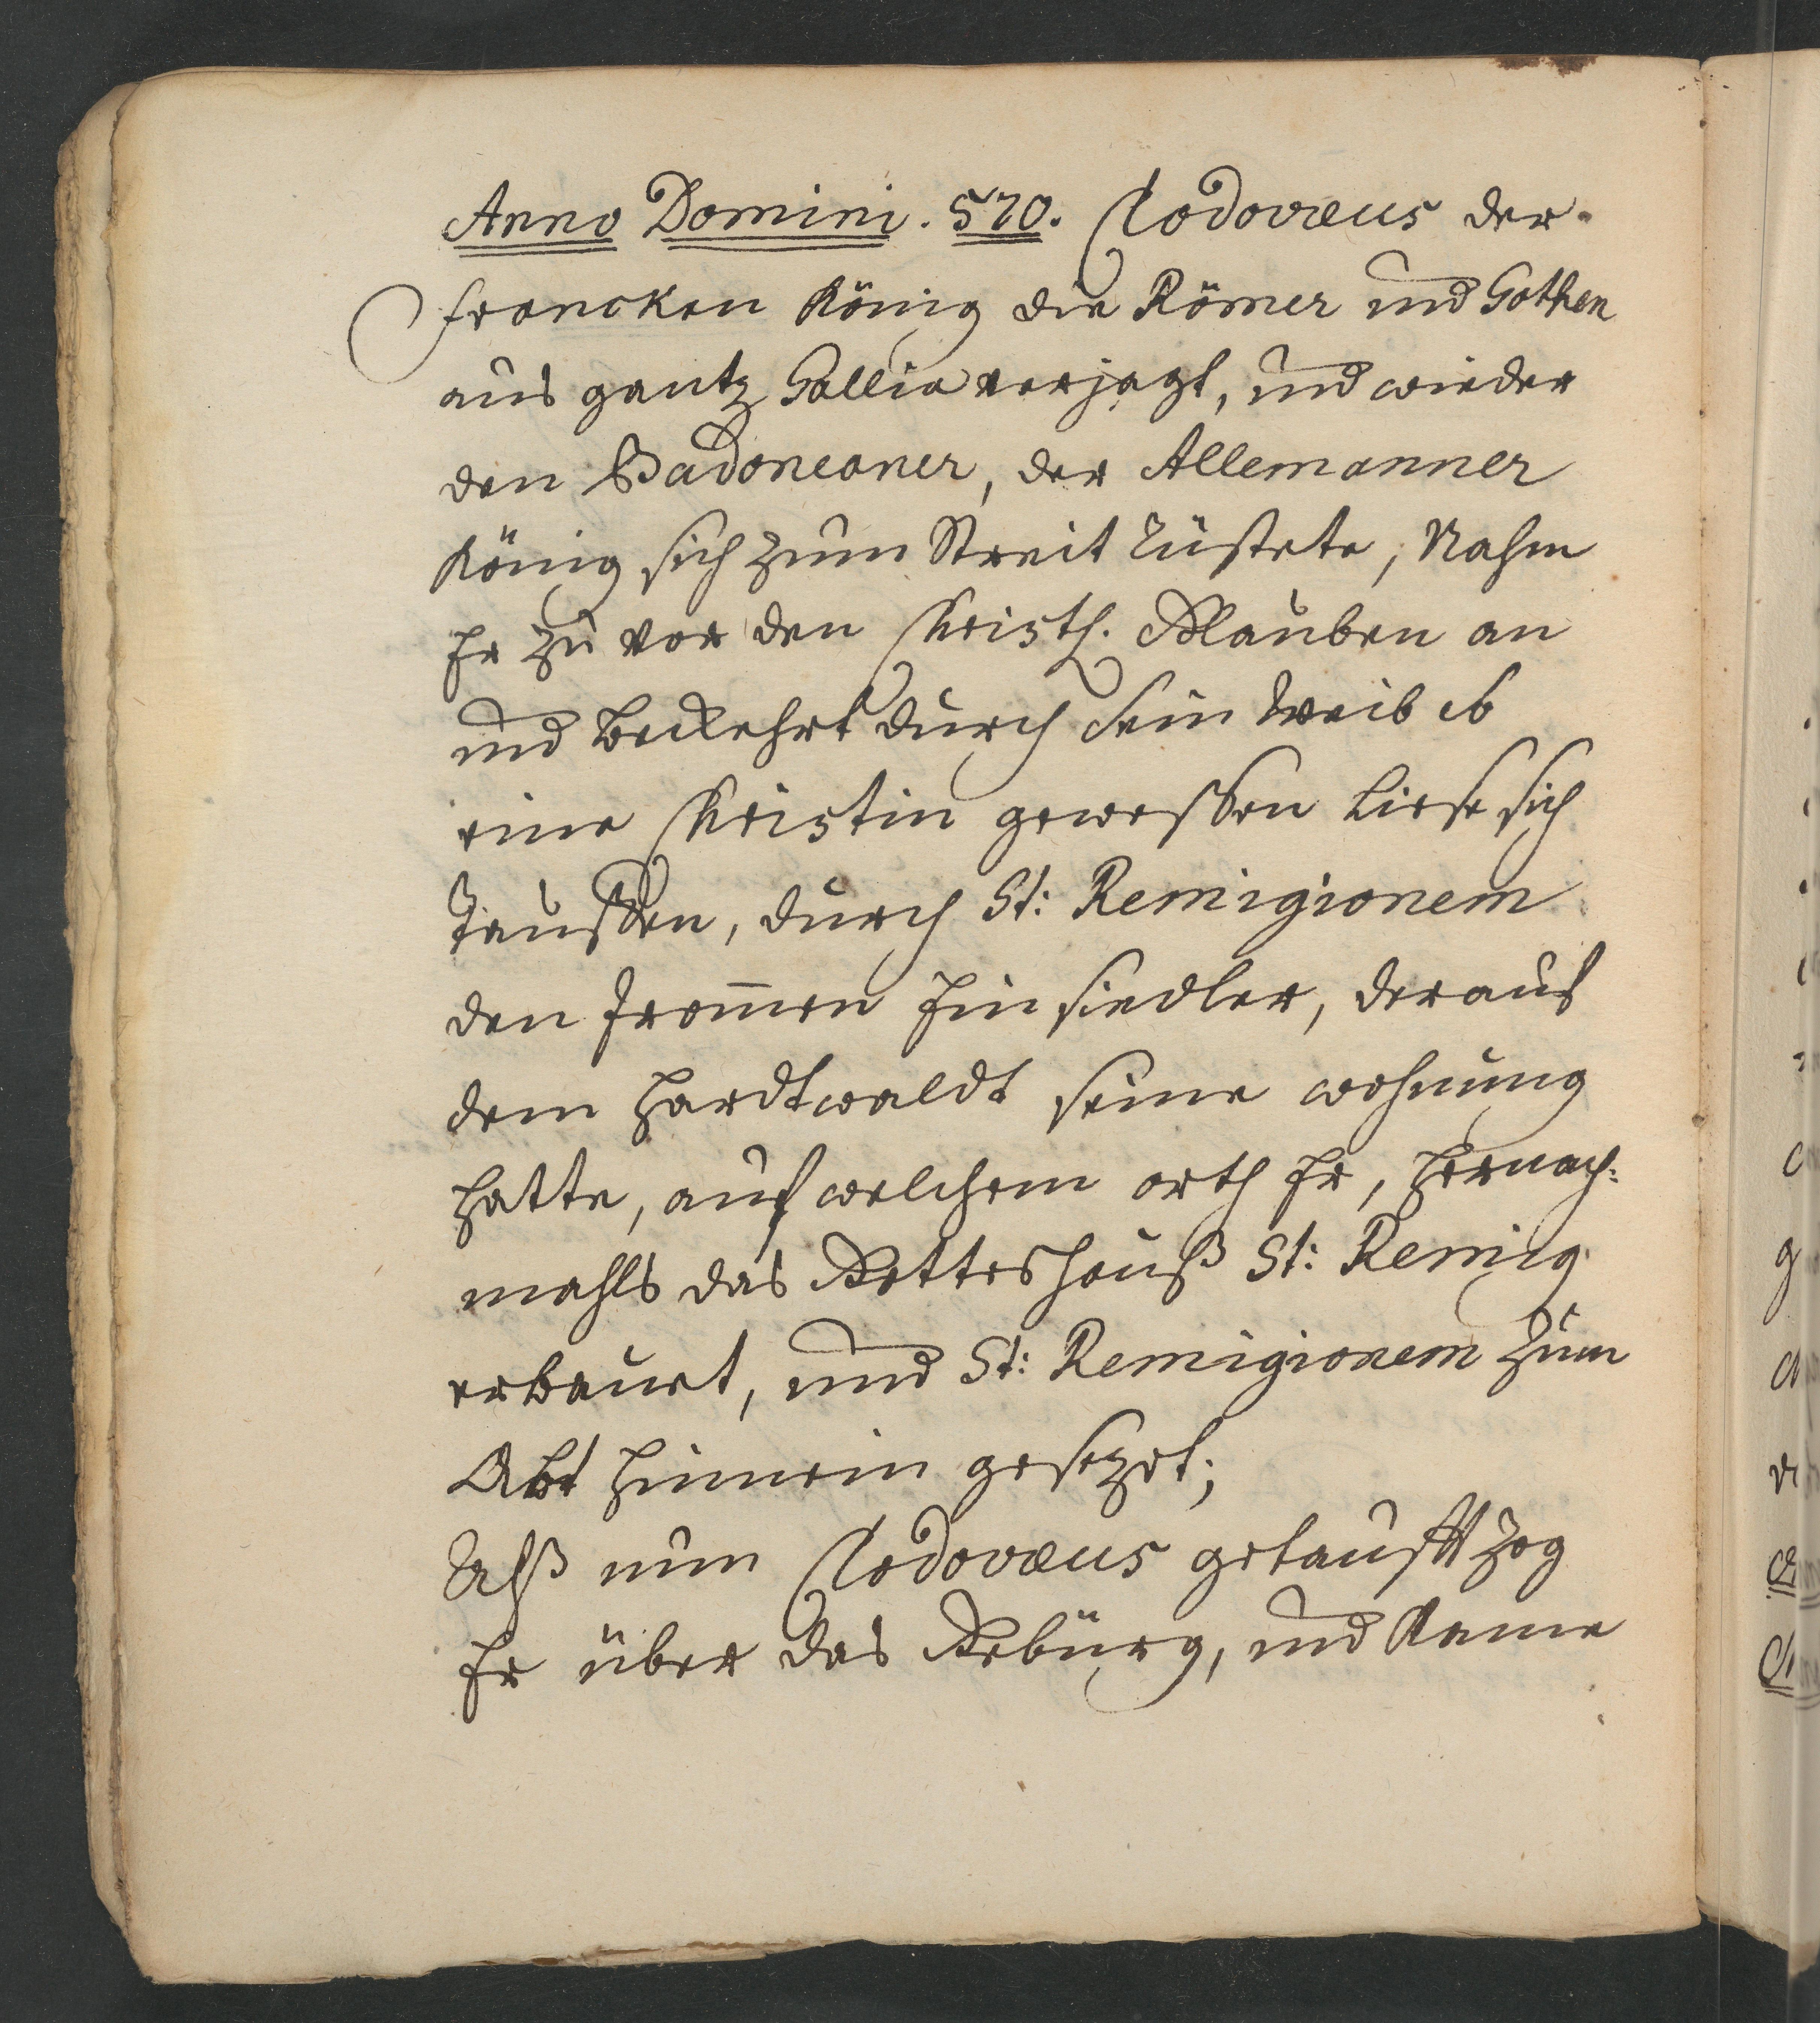 Anno Domini. 570. Clodovæus der
Francken König die Römer und Gothen
aus gantz Gallia verjagt, und wieder
den Badoneaner, der Allemanner
König sich zum Streit rüstete, Nahm
Er zu vor den Christl. Glauben an
und bekehrt durch sein Weib
eine Christin gewessen liese sich
Tauffen, durch St: Remigionem
den Fromen Einsiedler, der auf
dem Hardtwaldt seine wohnung
hatte, auf welchem orth Er, hernach:
mahls das Gotteshauß St: Remig
erbauet, und St: Remigionem zum
Abt hinnein gesezet;
Alß nun Clodovæus getaufft zog
Er über das Gebürg, und kame